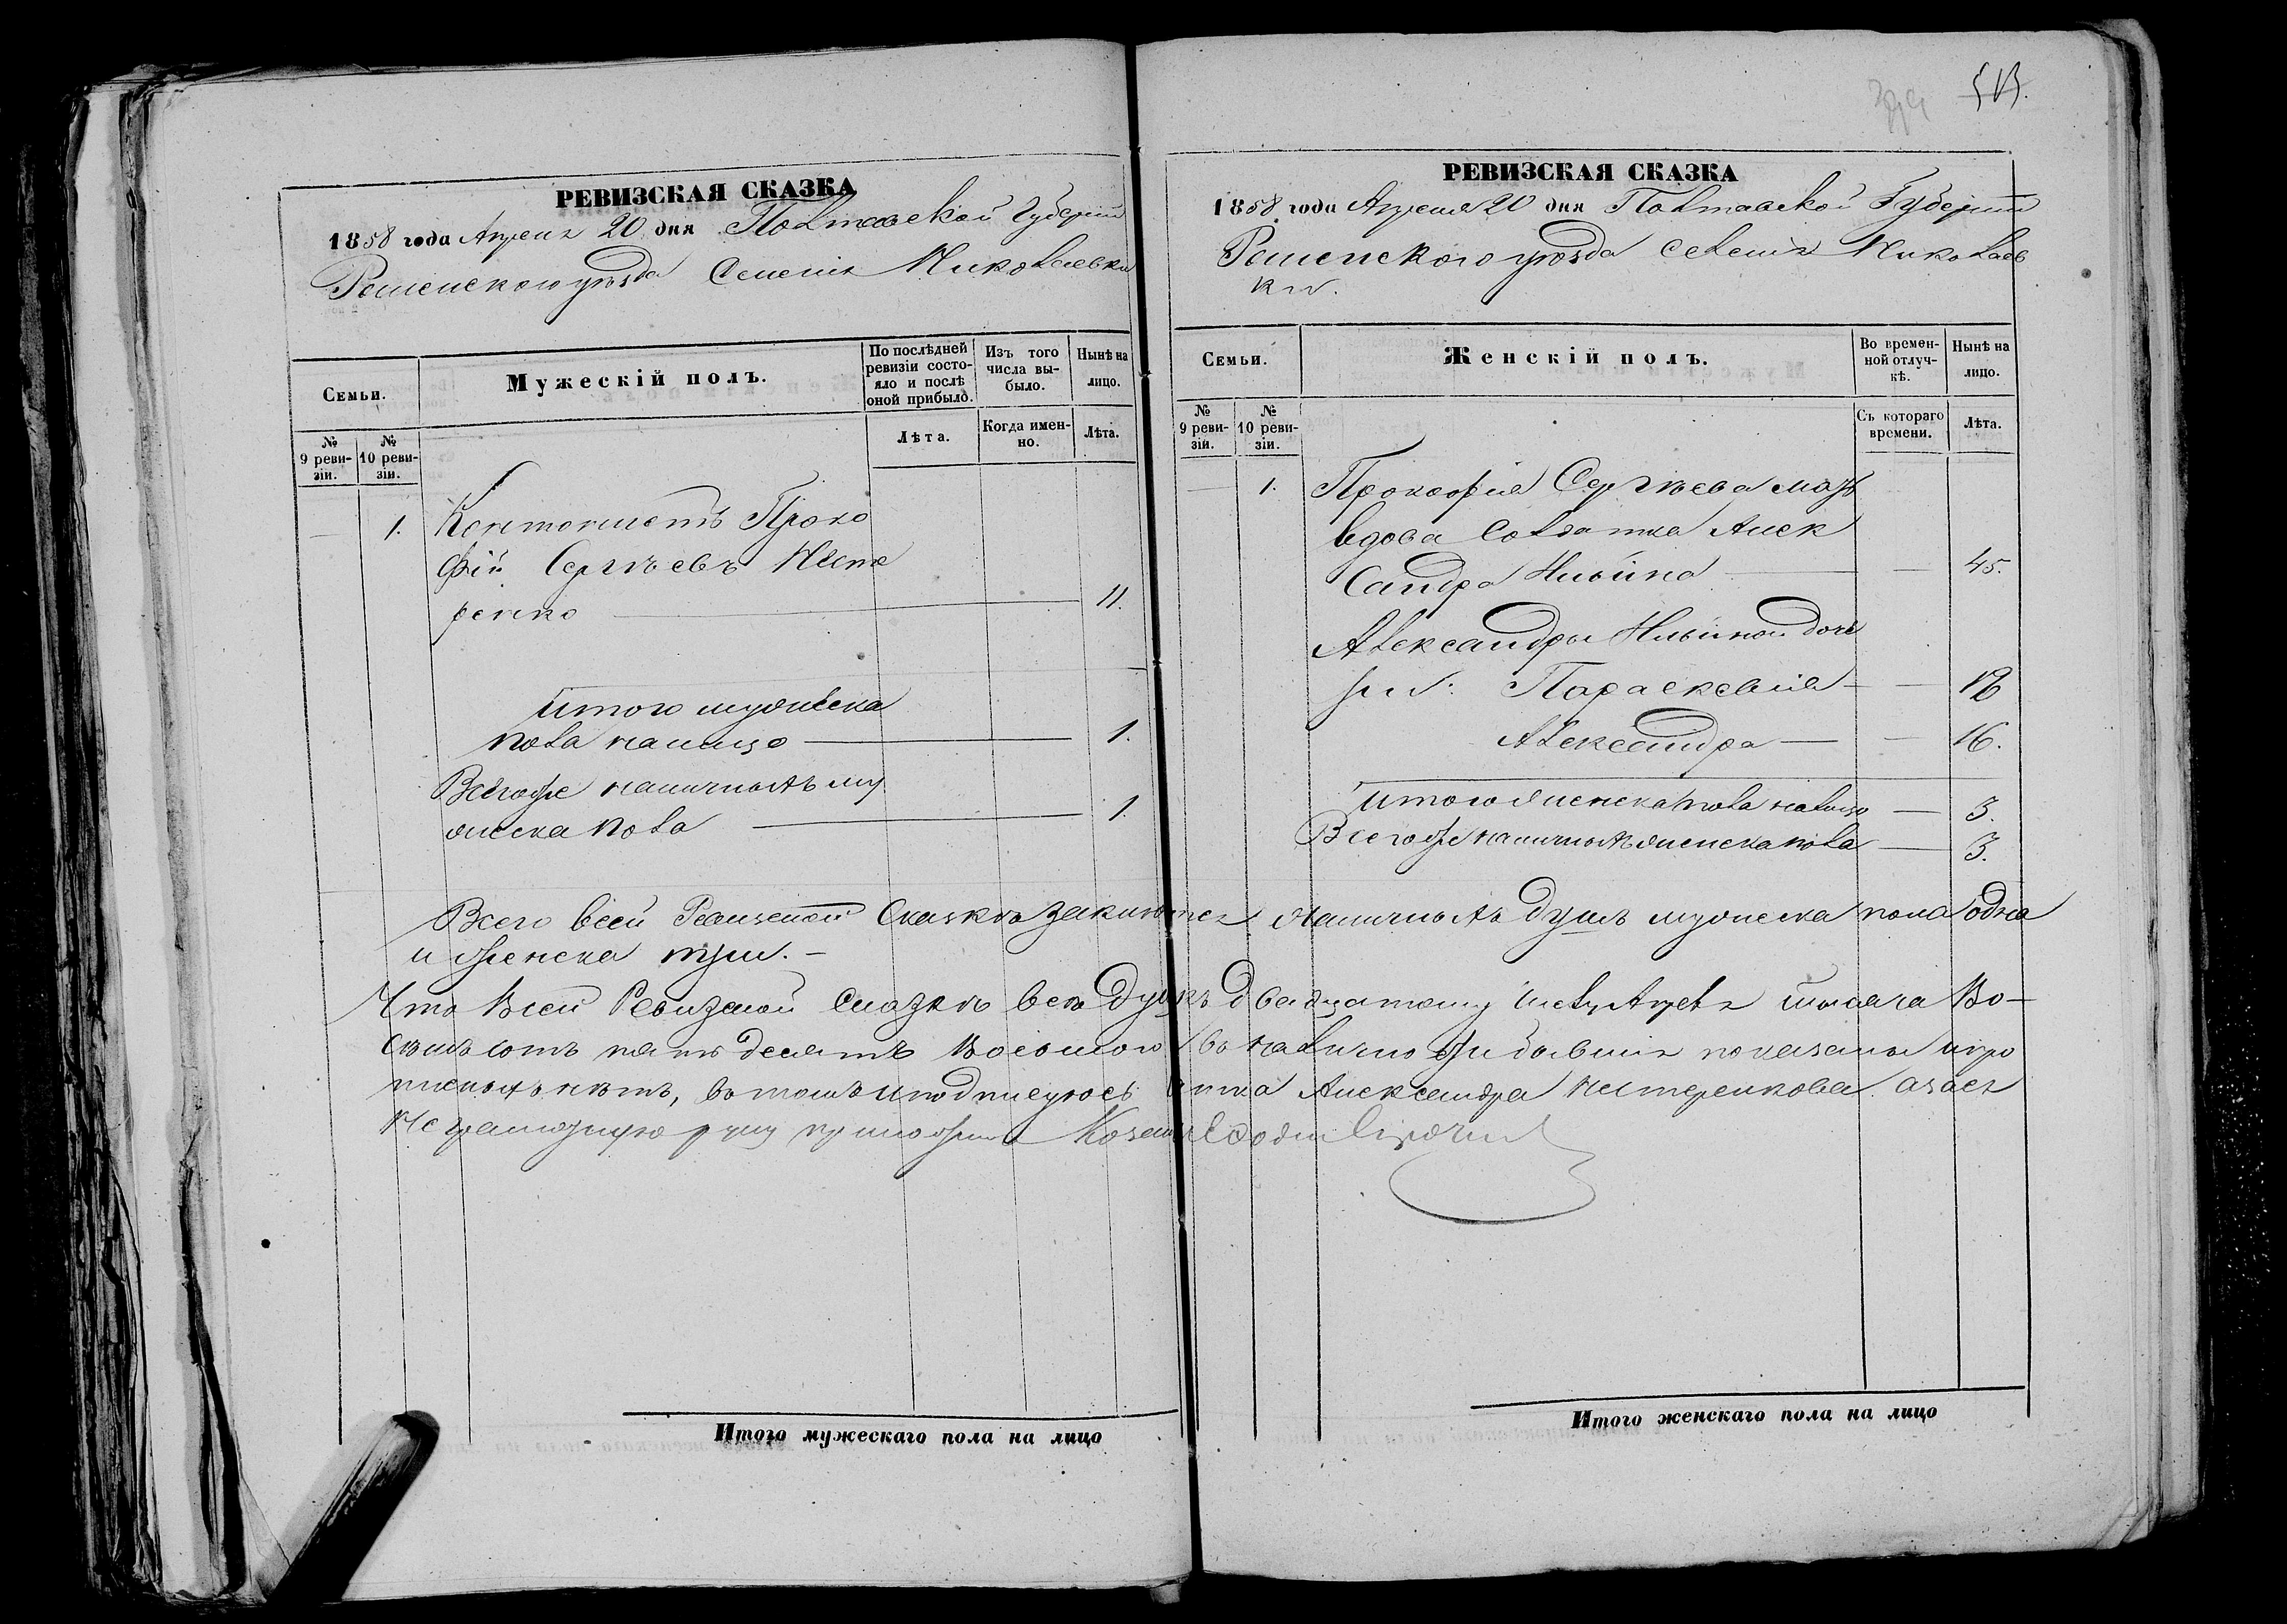 РЕВИЗСКАЯ СКАЗКА
1858 года Апреля 20 дня Полтавской Губернии
Роменского уѣзда Селенія Николаевки
Семьи.
Мужескій полъ.
По послѣдней ревизіи состояло и послѣ оной прибыло.
Изъ того числа выбыло.
Нынѣ на лицо.
№ 9 ревизіи.
№ 10 ревизіи.
Лѣта.
Когда именно.
Лѣта.
— 1. Кантонистъ Проко
фій Сергѣевъ Несте
ренко — 11.
Итого мужеска
пола налицо — 1.
Всегоже наличныхъ му
жеска пола — 1.
513.
РЕВИЗСКАЯ СКАЗКА
1858 года Апреля 20 дня Полтавской Губерніи
Роменского уѣзда Селенія Николаев
ки.
Семьи.
Женскій полъ.
Во временной отлучкѣ.
Нынѣ на лицо.
№ 9 ревизіи.
№ 10 ревизіи.
Съ котораго времени.
Лѣта.
— 1. Прокофія Сергѣева мать
вдова Солдатка Алек
сандра Ильина — — 45.
Александры Ильиной доче
ри: Параскевия — —
Александра — — 16.
Итого женска пола налицо — 3.
Всегоже наличныхъ женска пола — 3.
Всего всей Ревизской Сказкѣ заключается наличныхъ душъ мужеска пола одна
и женска три. —
Что всей Ревизской Сказкѣ всѣ душъ Двадцатому Апреля тысяча Во-
семъсотъ пятьдесятъ Восьмого въ налично показаны и про
писныхъ нѣтъ, въ томъ и подписуюсь Александра Нестеренкова азаея
Неграмотную руку приложилъ Козакъ
Итого мужескаго пола на лицо
Итого женскаго пола на лицо